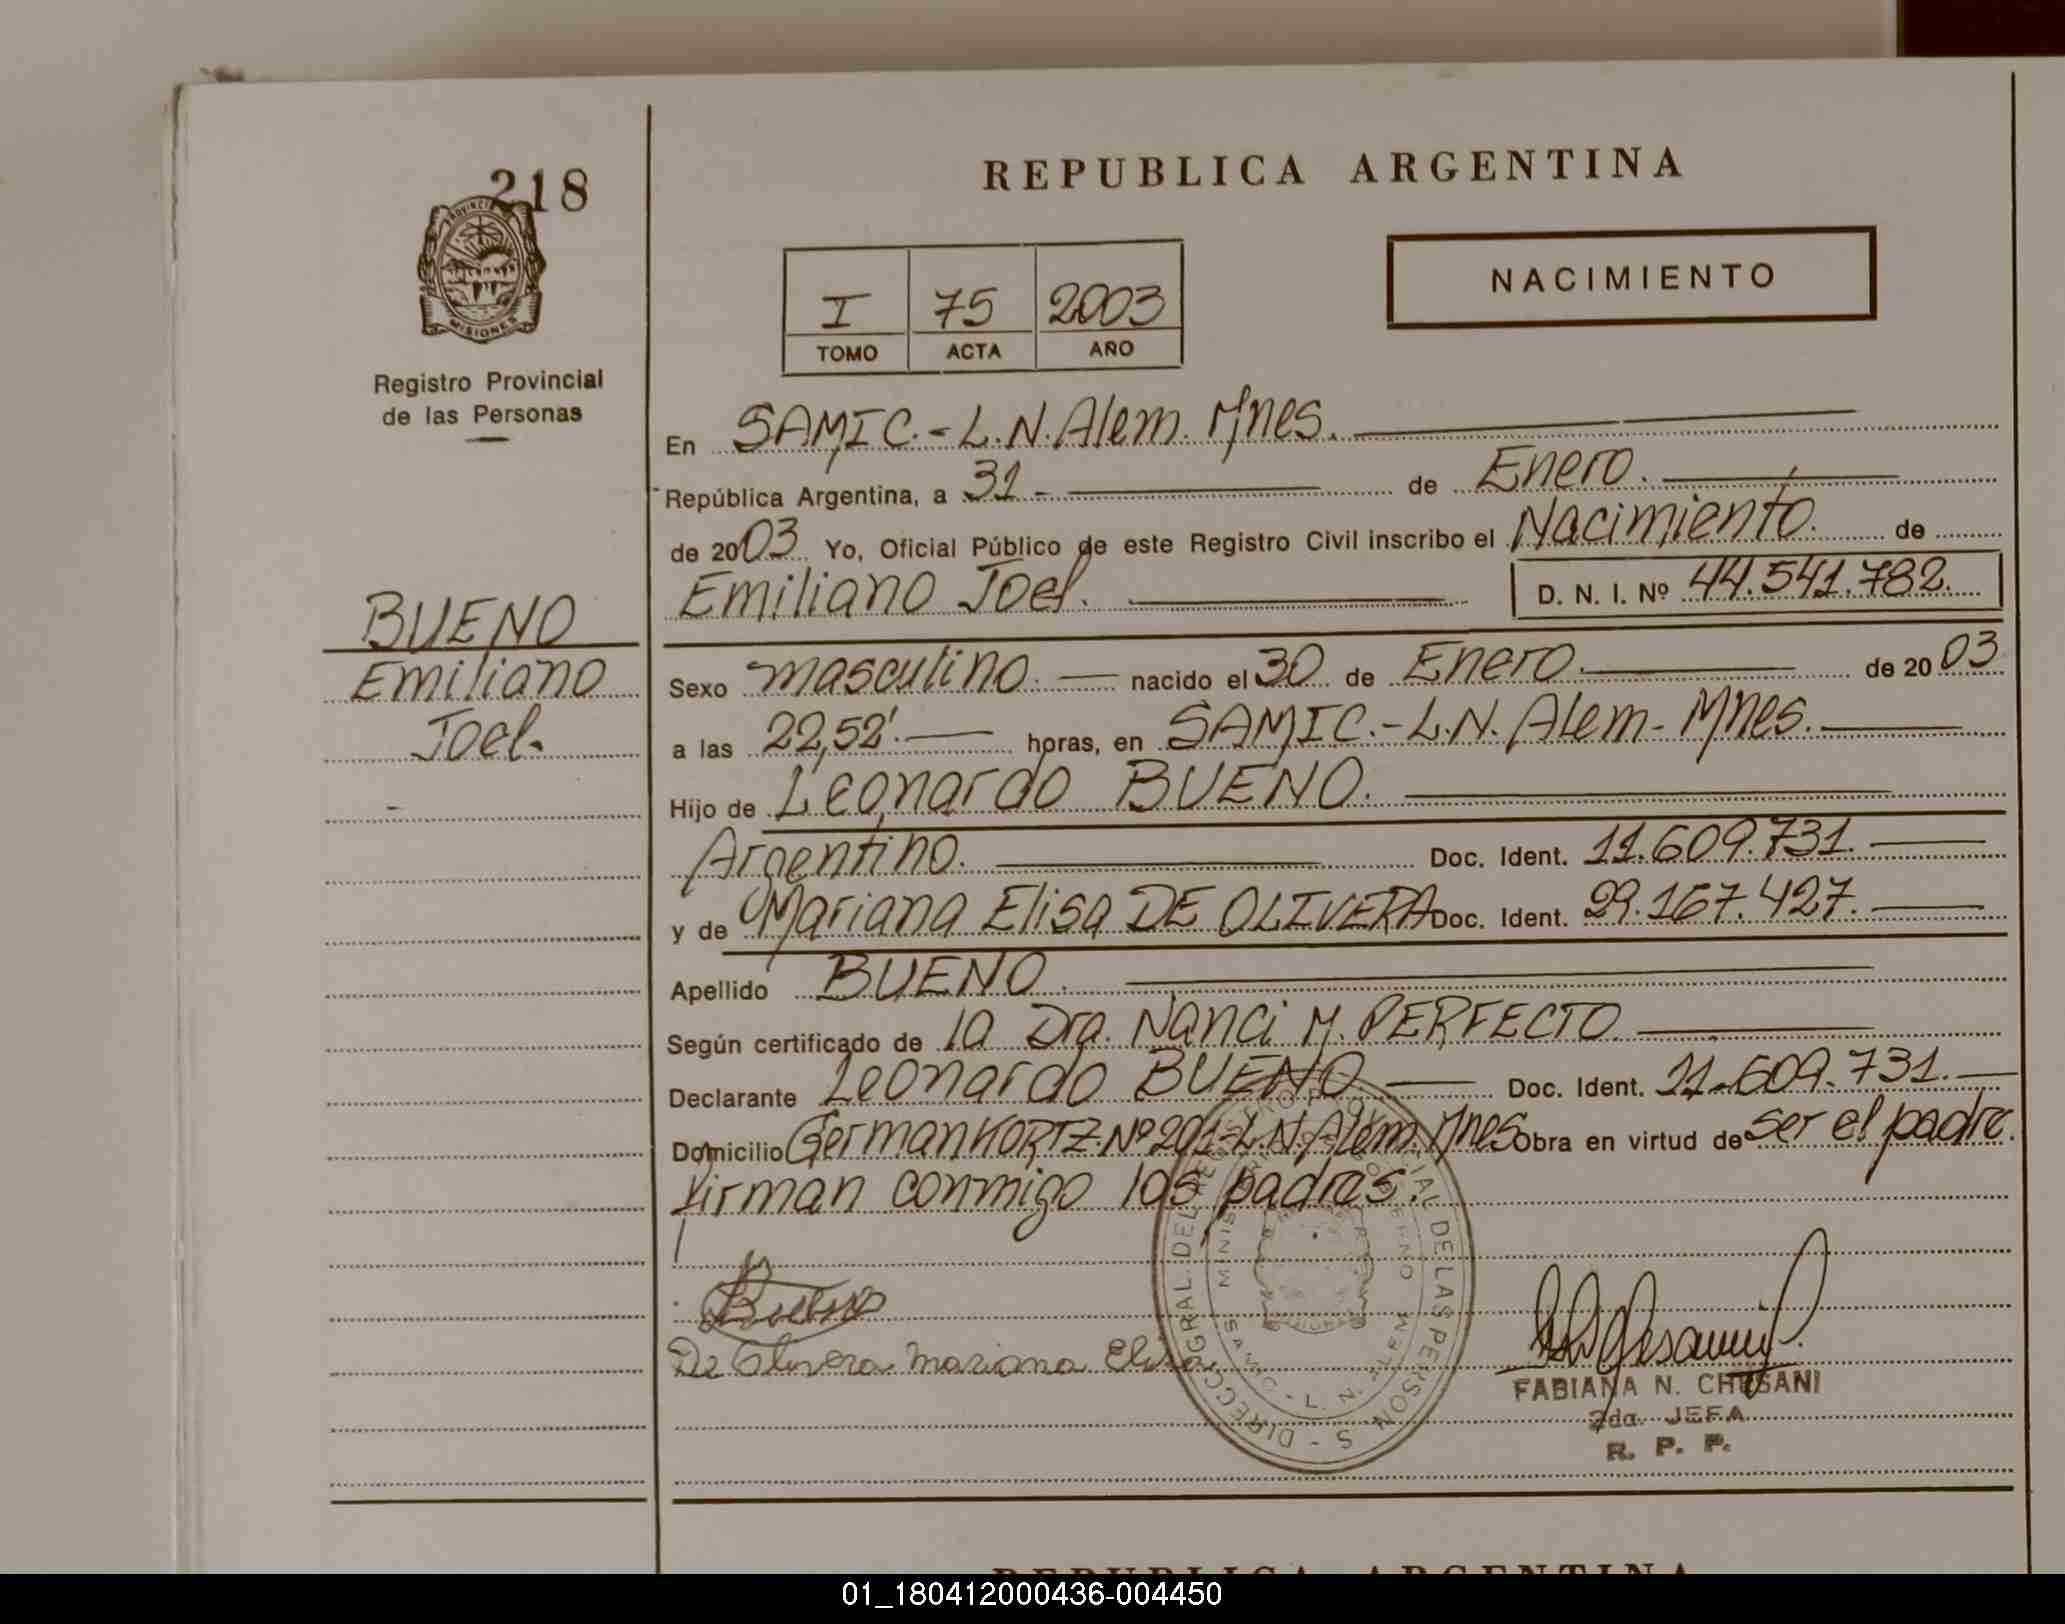 218
PROVINCIA
MISIONES
Registro Provincial
de las Personas
BUENO
Emiliano
Joel.
REPUBLICA ARGENTINA
NACIMIENTO
I 75 2003
TOMO ACTA AÑO
En SAMIC.-L.N.Alem. Mnes.
República Argentina, a 31 - de Enero.
de 2003 Yo, Oficial Público de este Registro Civil inscribo el Nacimiento. de
Emiliano Joel. D. N. I. Nº 44.541.782.
Sexo masculino. nacido el 30 de Enero. de 2003
a las 22,52'. horas, en SAMIC.-L.N. Alem- Mnes.
Hijo de Leonardo BUENO.
Argentino. Doc. Ident. 11.609.731.
y de Mariana Elisa DE OLIVERA Doc. Ident. 29.167.427.
Apellido BUENO.
Según certificado de la Dra. Nanci M. PERFECTO
Declarante Leonardo BUENO Doc. Ident. 11.609.731.
Domicilio German KORTZ.Nº201-L.N.Alem. Mnes Obra en virtud de ser el padre.
Firman conmigo los padres.
Bueno
De Olivera Mariana Elisa
DIRECC. GRAL. DEL REGISTRO PROVINCIAL DE LAS PERSONAS
SAMIC - L. N. ALEM
FABIANA N. CHESANI
2da. JEFA
R. P. P.
REPUBLICA ARGENTINA
01_180412000436-004450